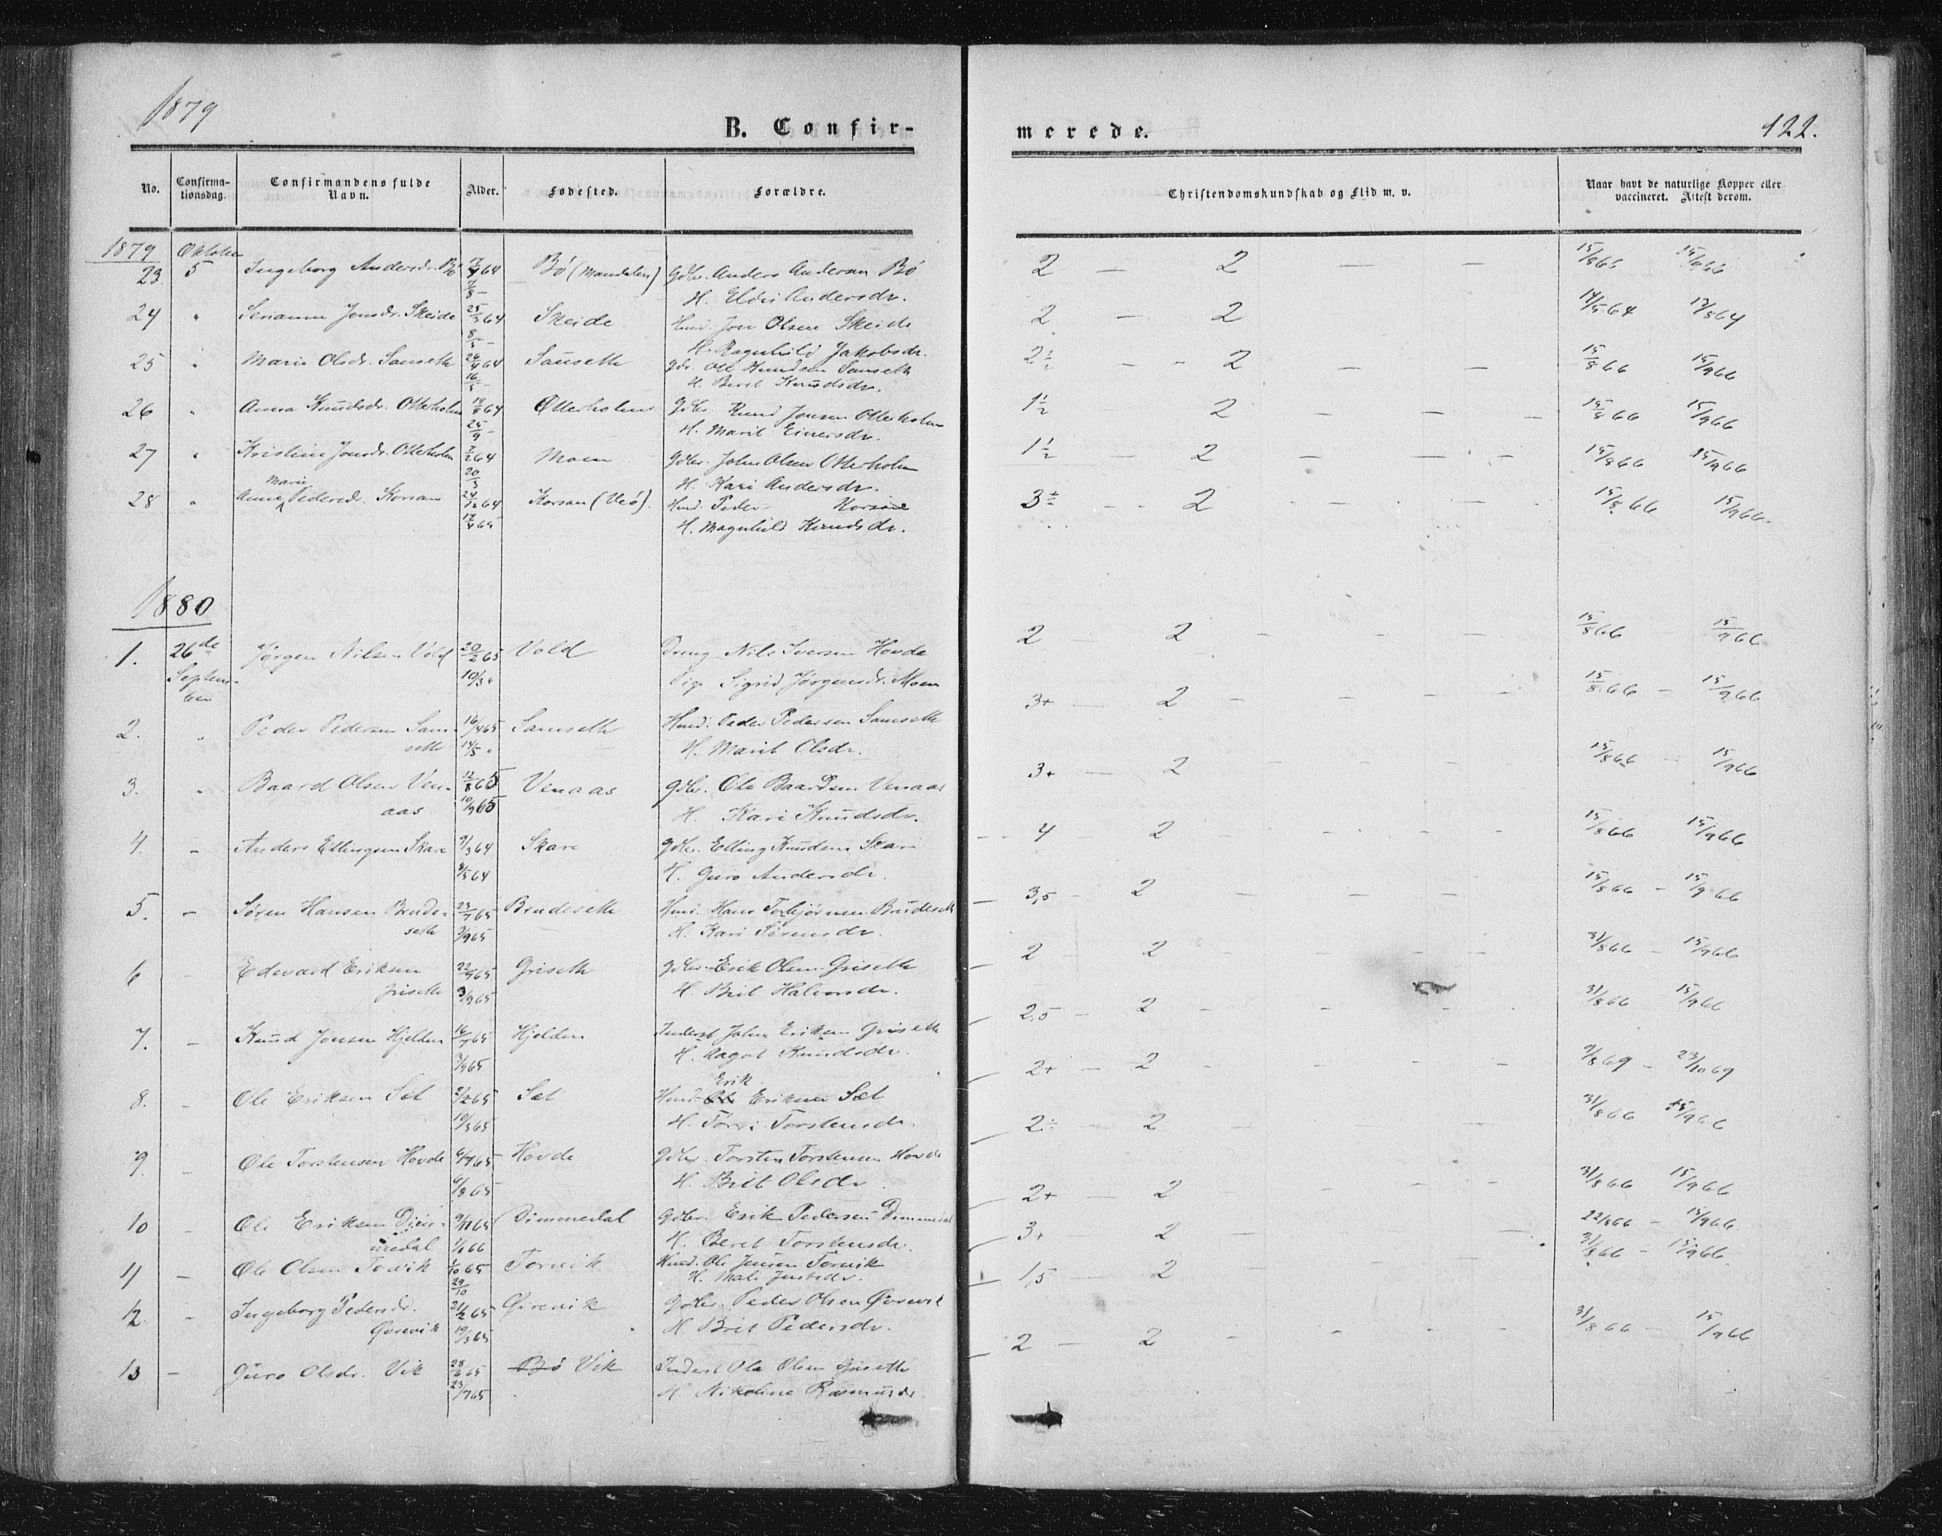 1879
B. Confir-
merede.
122.
No.
Confirma-
tionsdag.
Confirmandens fulde
Navn.
Alder.
Fødested.
Forældre.
Christendomskundskab og Flid m. v.
Naar havt de naturlige Kopper eller
vaccineret. Attest derom.
1879 Oktober
23. 5 Ingeborg Andersdr. Bø 64 Bø (Mandalen) Gdbr. Anders Andersen Bø 2 — 2 — — 15/8 66 15/9 66
H. Eldri Andersdr.
24 " Jonsdr. Skeide 25/3 64 Skeide Husd. Jon Olsen Skeide 2 — 2 14/5 64 64
H. Ragnhild Jakobsdr.
25 " Marie Olsdr. Samseth 24/4 64 Samseth Gdr. Ole Knudsen Samseth 2½ - - 2 — — 15/8 66 15/9 66
16/5 — H. Beret Knudsdr.
26 " Anna Knudsdr. Otterholm 64 Otterholm Gdbr. Knud Jonsen Otterholm 1½ 2 — — 15/8 66 15/9 66
25/9 — H. Marit Einersdr.
27 " Kristine Jonsdr. Otterholm 64 Moen Gdbr. John Olsen Otterholm 1½ 2 — — 15/8 66 15/9 66
20/3 H. Kari Andersdr.
Marie
28 " Anne Pedersdr. Korsan 24/12 64 Korsan (Veø). Husd. Peder 3÷ 2 15/8 66 15/9 66.
17/4 65 H. Magnhild Knudsdr.
1880
1. 26de Jørgen Nilsen Vold 20/2 65 Vold Dreng Nils Iversen Hovde 2 — 2 15/8 66 15/9 66
Septem- 10/3 " Pige Sigrid Jørgensdr. Moen
ber
2. " Peder Pedersen Sam- 16/4 65 Samseth Husd. Peder Pedersen Samseth 3+ — 2 15/8 66 — 15/9 66
seth 14/5 " H. Marit Olsdr.
3. " Baard Olsen Ven- 65 Venaas Gdbr. Ole Baardsen Venaas 3+ — 2 15/8 66 15/9 66
aas 10/9 65 H. Kari Knudsdr.
4. — Anders Ellingsen Skare 9/3 64 Skare Gdbr. Elling Knudsen Skare 4 2 15/8 66 15/9 66
8/5 64 H. Guro Andersdr.
5. — Søren Hansen Brude- 23/7 65 Brudeseth Husd. Hans Torbjørnsen Brudeseth 3,5 — 2 15/8 66 — 15/9 66
seth 3/9 65 H. Kari Sørensdr.
6 Edevard Eriksen 65 Griseth Gdbr. Erik Olsen Griseth 2 2 31/8 66 — 15/9 66
Griseth 3/9 65 H. Brit Halvorsdr.
7. — Knud Jonsen Hjelden 16/7 65 Hjelden Inderst John Eriksen Griseth 2,5 — 2 31/8 66 15/9 66
3/9 65 H. Aagot Knudsdr.
Erik
8. — Ole Eriksen Sæt 2/2 65 Sæt Husd. Eriksen Sæt 2+ — 2 9/8 69 — 23/10 69
19/3 65 H. Torstensdr.
9. — Ole Torstensen Hovde 6/7 65 Hovde Gdbr. Torsten Torstensen Hovde 2÷ — 2 31/8 66 15/9 66
6/8 65 H. Brit Olsdr.
10 — Ole Eriksen Dim- 9/11 65 Dimmedal Gdbr. Erik Pedersen Dimmedal 2+ — 2 31/8 66 15/9 66
medal 1/1 66 H. Beret Torstensdr. 3+ 2 22/8 66 — 15/9 66
11 — Ole Olsen Torvik 65 Torvik Husd. Ole Jensen Torvik 31/8 66 — 15/9 66
29/10 H. 1,5 — 2
12 — Ingeborg Pedersdr. 21/2 65 Øverevik Gdbr. Peder Olsen
19/3 65 H. Brit Pedersdr. 2 — 2 31/8 66 — 15/9 66
13 — Guro Olsdr. Vik 28/6 65 Bø Vik Inderst Ole Olsen Griseth
23/7 65 H. Nikoline Rasmusdr.